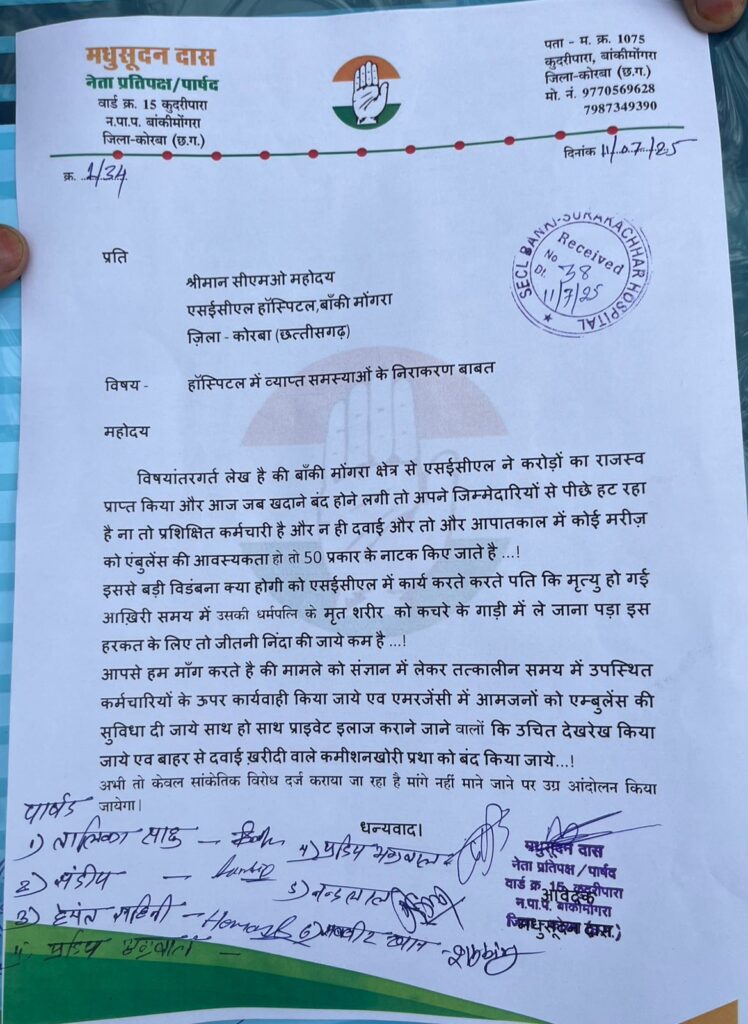 मधुसूदन दास
नेता प्रतिपक्ष/पार्षद
वार्ड क्र. 15 कुदरीपारा
न.पा.प. बांकीमोंगरा
जिला-कोरबा (छ.ग.)
पता - म. क्र. 1075
कुदरीपारा, बांकीमोंगरा
जिला-कोरबा (छ.ग.)
मो. नं. 9770569628
7987349390
क्र. 1/34
दिनांक 11/07/25
SECL BANKI-SURAKACHHAR HOSPITAL
Received
No 38
Dt. 11/7/25
प्रति
श्रीमान सीएमओ महोदय
एसईसीएल हॉस्पिटल,बाँकी मोंगरा
ज़िला - कोरबा (छत्तीसगढ़)
विषय - हॉस्पिटल में व्याप्त समस्याओं के निराकरण बाबत
महोदय
विषयांतरगर्त लेख है की बाँकी मोंगरा क्षेत्र से एसईसीएल ने करोड़ों का राजस्व
प्राप्त किया और आज जब खदाने बंद होने लगी तो अपने जिम्मेदारियों से पीछे हट रहा
है ना तो प्रशिक्षित कर्मचारी है और न ही दवाई और तो और आपातकाल में कोई मरीज़
को एंबुलेंस की आवस्यकता हो तो 50 प्रकार के नाटक किए जाते है ...!
इससे बड़ी विडंबना क्या होगी को एसईसीएल में कार्य करते करते पति कि मृत्यु हो गई
आख़िरी समय में उसकी धर्मपत्नि के मृत शरीर को कचरे के गाड़ी में ले जाना पड़ा इस
हरकत के लिए तो जीतनी निंदा की जाये कम है ...!
आपसे हम माँग करते है की मामले को संज्ञान में लेकर तत्कालीन समय में उपस्थित
कर्मचारियों के ऊपर कार्यवाही किया जाये एव एमरजेंसी में आमजनों को एम्बुलेंस की
सुविधा दी जाये साथ हो साथ प्राइवेट इलाज कराने जाने वालों कि उचित देखरेख किया
जाये एव बाहर से दवाई ख़रीदी वाले कमीशनखोरी प्रथा को बंद किया जाये...!
अभी तो केवल सांकेतिक विरोध दर्ज कराया जा रहा है मांगे नहीं माने जाने पर उग्र आंदोलन किया
जायेगा।
धन्यवाद।
पार्षद
1) तालिका साहु
2) संदीप
3) हेमंत साहनी
4) प्रदिप अग्रवाल
5) नन्दलाल
मधुसूदन दास
नेता प्रतिपक्ष / पार्षद
वार्ड क्र. 15, कुदरीपारा
न.पा.प. बांकीमोंगरा
आवेदक
मधुसूदन दास